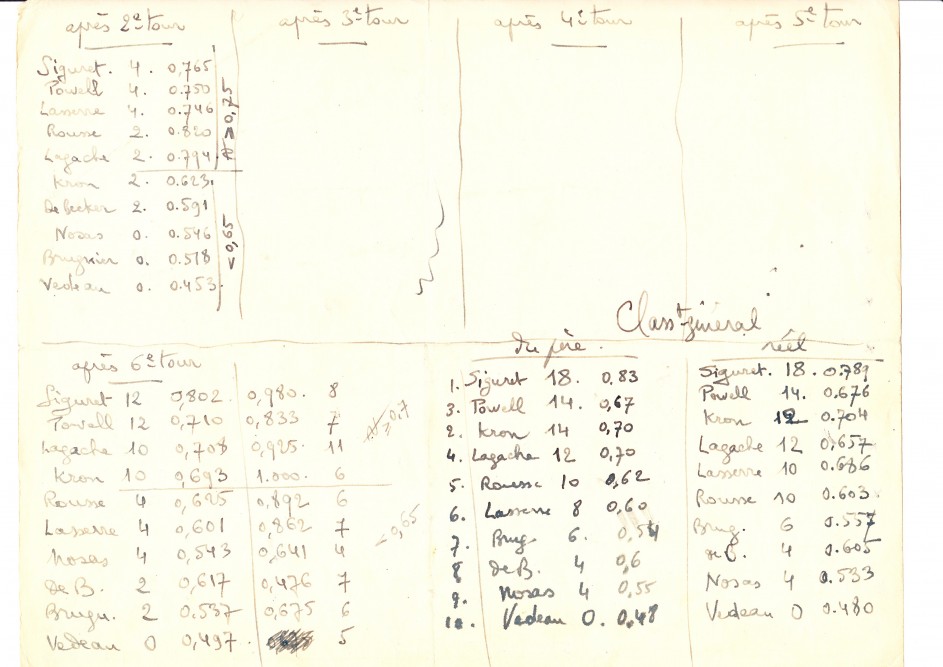 après 2e tour
après 3e tour
après 4e tour
après 5e tour
Siguret. 4. 0,765
Powell 4. 0.750
Lasserre 4. 0.746
Rousse 2. 0.820
Lagache 2. 0.794
≥ 0,75
Kron 2. 0.623
de Becker 2. 0.591
Nosas 0. 0.546
Brugnier 0. 0.518
Vedeau 0. 0.453
< 0,65
Classt général
après 6e tour
Siguret 12 0,802. 0,980. 8
Powell 12 0,710 0,833 7
Lagache 10 0,708 0,925. 11
Kron 10 0,693 1.000. 6
≥ 0,7
Rousse 4 0,625 0,892 6
Lasserre 4 0,601 0,862 7
Nosas 4 0,543 0,641 4
de B. 2 0,617 0,476 7
Brugn. 2 0.537 0,675 6
Vedeau 0 0,497. 5
< 0,65
du père.
1. Siguret 18. 0,83
3. Powell 14. 0,67
2. Kron 14 0,70
4. Lagache 12 0,70
5. Rousse 10 0,62
6. Lasserre 8 0,60
7. Brug. 6. 0,54
8 de B. 4 0,6
9. Nosas 4 0,55
10. Vedeau 0. 0,48
réel
Siguret. 18. 0.789
Powell 14. 0.676
Kron 12 0.704
Lagache 12 0,657
Lasserre 10 0.686
Rousse 10 0.603.
Brug. 6 0.557
de B. 4 0.605
Nosas 4 0.533
Vedeau 0 0.480